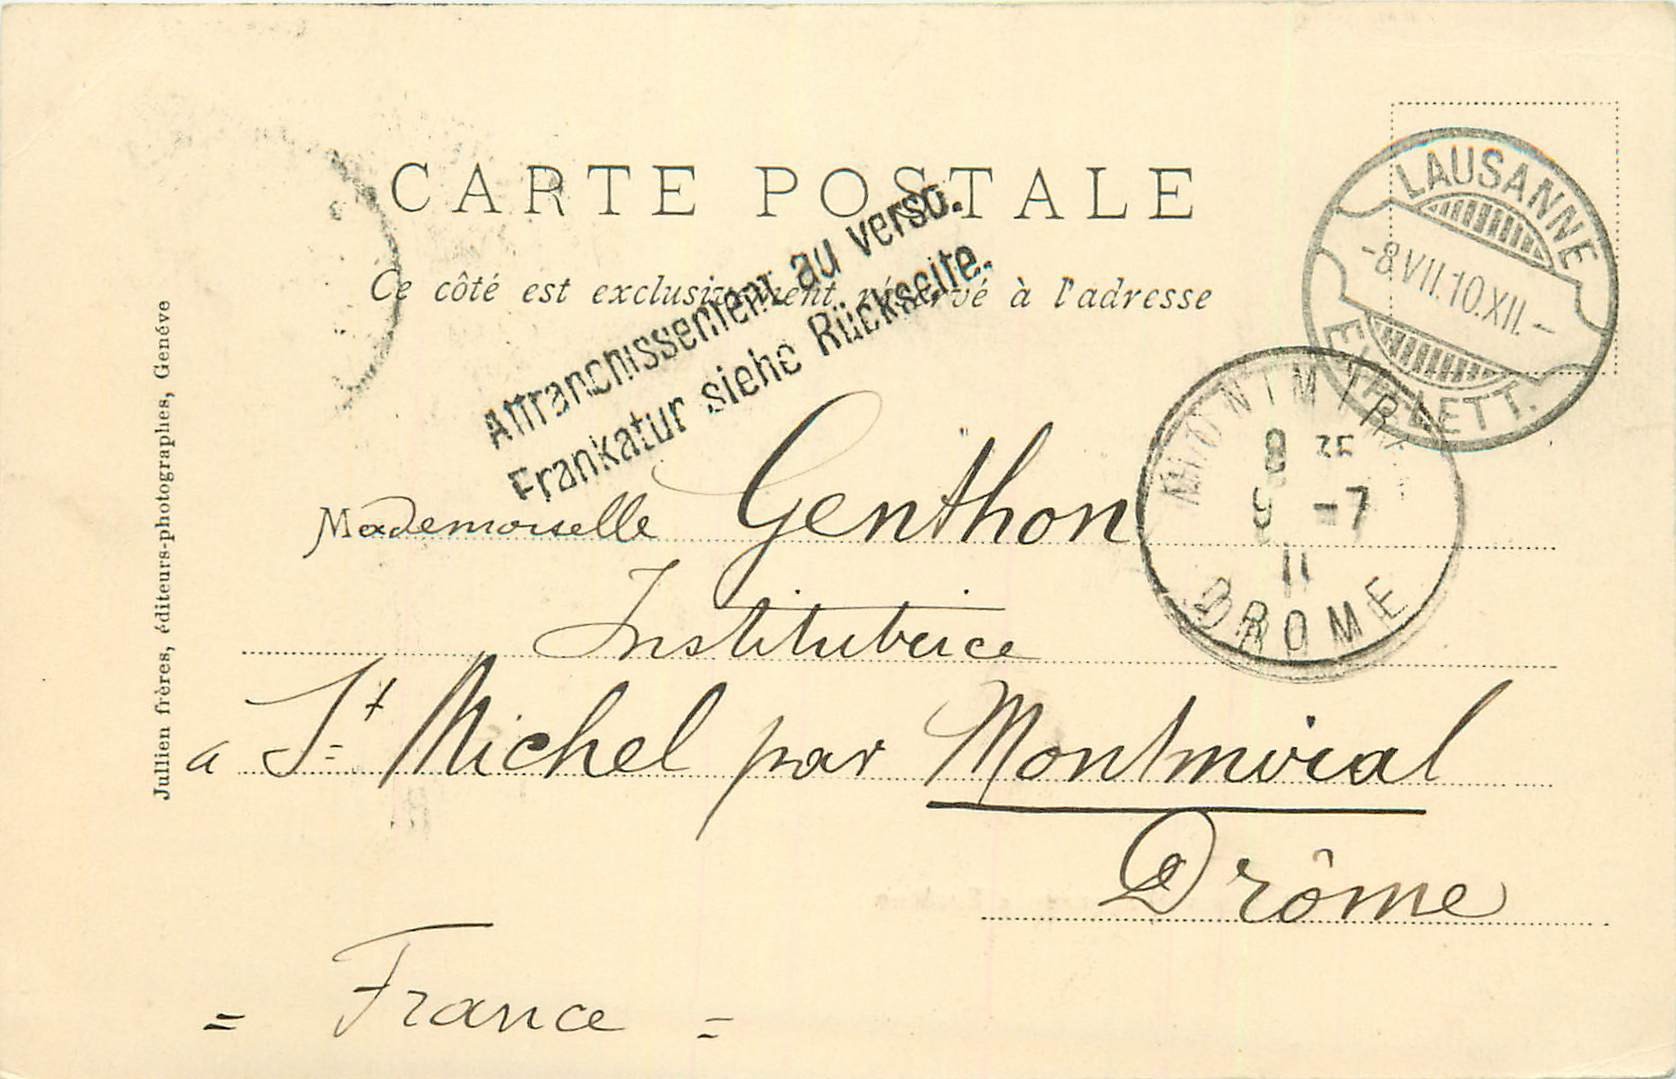 CARTE POSTALE
Ce côté est exclusivement réservé à l'adresse
Affranchissement au verso.
Frankatur siehe Rückseite.
LAUSANNE
-8.VII.10.XII.-
LETT.
DROME
8 35
9 -7
11
Mademoiselle Genthon
Institutrice
a St Michel par Montmiral
Drôme
= France =
Jullien frères, éditeurs-photographes, Genève